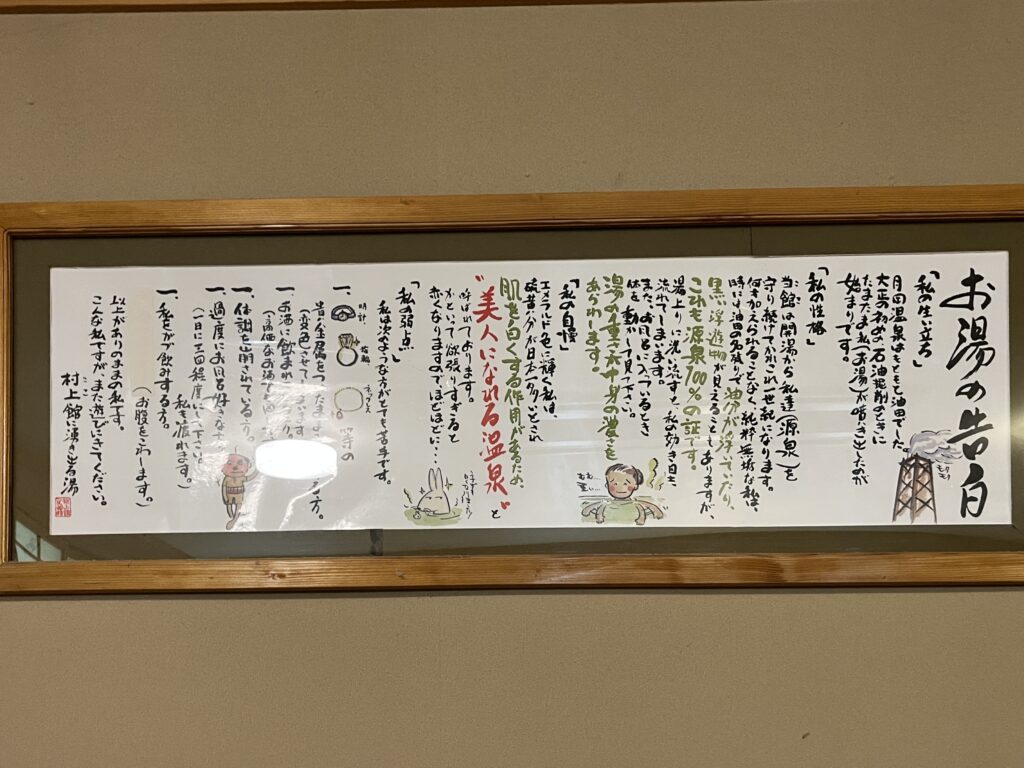 お湯の告白
モクモク
「私の生い立ち」
月岡温泉はもともと油田でした。
大正の初め、石油掘削のときに
たまたま私(お湯)が噴き出したのが
始まりです。
「私の性格」
当館は開湯から私達(源泉)を
守り続けてかれこれ一世紀になります。
何も加えられることなく純粋無垢な私は、
時には油田の名残りで油分が浮いてたり、
黒い浮遊物が見えるときもありますが、
これも源泉100%の証です。
湯上りに洗い流すと、私の効き目も
流れてしまいます。
また、お風呂に入っているとき
体を動かして見て下さい。
湯の重さが中身の濃さを
あらわします。
「私の自慢」
エメラルド色に輝く私は、
硫黄分が日本一多いとされ
肌を白くする作用があるため、
"美人になれる温泉"と
呼ばれております。
かといって欲張りすぎると
赤くなりますので、ほどほどに…
「私の弱点」
私は次のような方がとても苦手です。
時計
指輪
ネックレス
等の
一、貴金属をつけたまま
(変色させてしまいます
一、お酒に飲まれ
(高価なお酒でも同
一、体調を崩されている方。
一、過度にお風呂好きな方
(一日に三回程度にして下さい。
私も疲れます。)
一、私をガブ飲みする方。
(お腹をこわします。)
以上がありのままの私です。
こんな私ですが、また遊びにきてください。
村上館に湧き出る湯